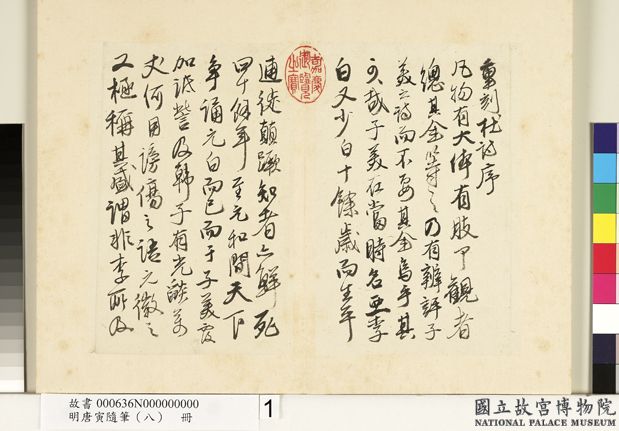 重刻杜詩序
凡物有大體有肢甲觀者
總其全
乃有辨評子
美之詩而不要其全烏乎其
可哉子美在當時名亞李
白又少白十餘歲而生平
連徙顛蹶知者亦鮮死
四十餘年至元和間天下
爭誦元白而已而于子美更
加詆訾及韓子有光燄萬
丈何用謗傷之語元微之
又極稱其盛謂非李所及
嘉慶御覽之寶
故書 000636N000000000
明唐寅隨筆（八） 冊
1
國立故宮博物院
NATIONAL PALACE MUSEUM